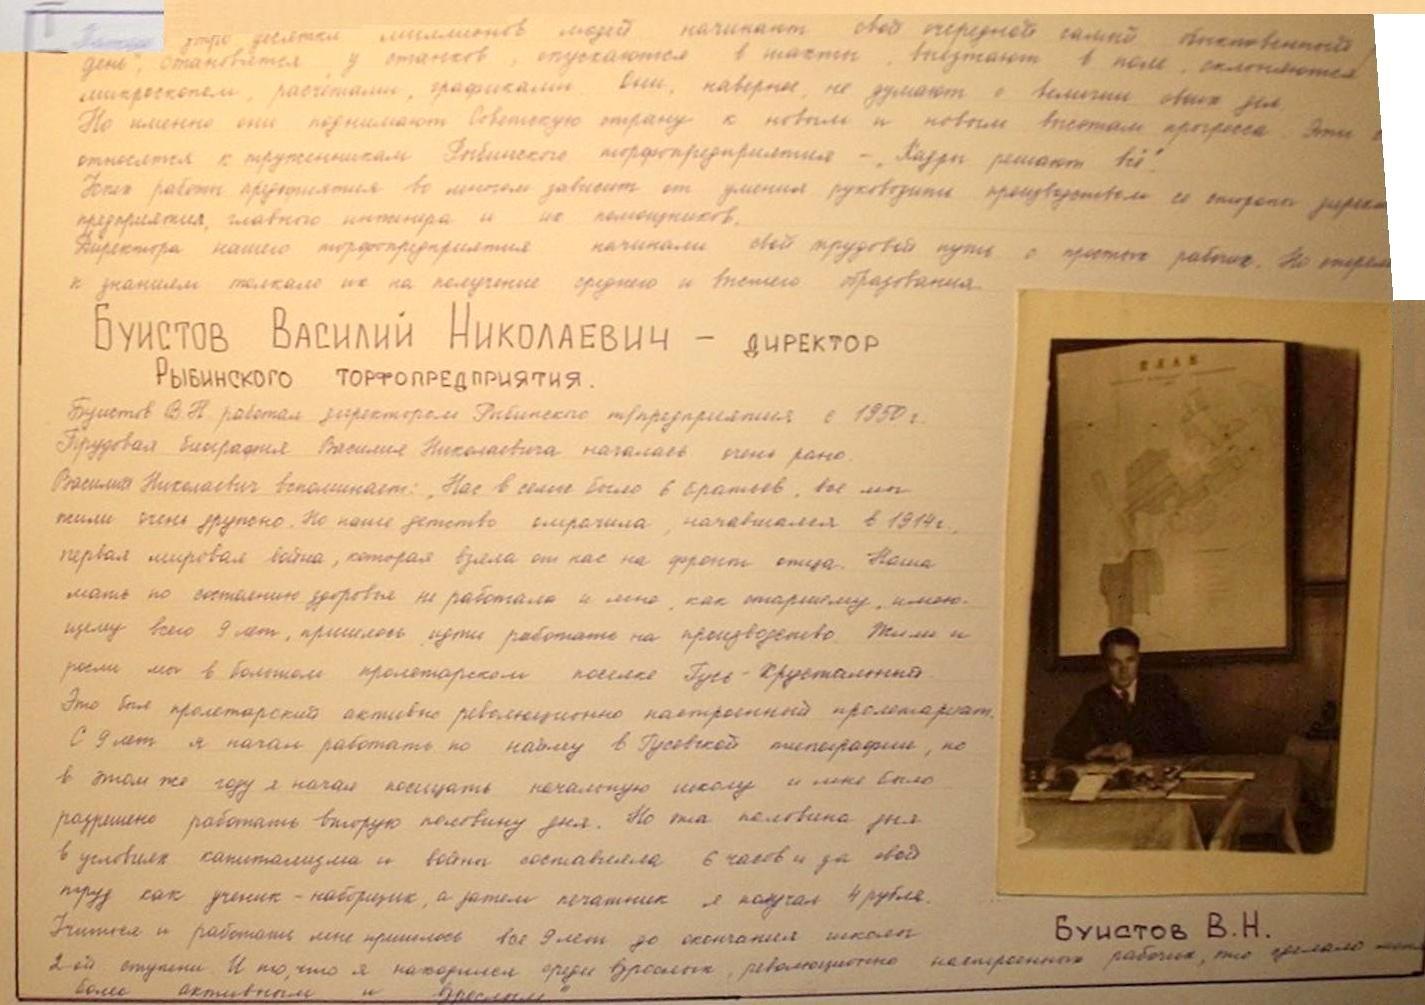 Каждое утро десятки миллионов людей начинают свой очередной самый обыкновенный
день", становятся у станков, опускаются в шахты, выезжают в поле, склоняются
микроскопом, расчётами, графиками. Они, наверное, не думают о величии своих дел.
Но именно они поднимают Советскую страну к новым и новым высотам прогресса. Эти
относятся к труженникам Рыбинского торфопредприятия - „Кадры решают всё".
Успех работы предприятия во многом зависит от умения руководить производством со стороны
предприятия, главного инженера и их помощников.
Директора нашего торфопредприятия начинали свой трудовой путь с простых рабочих. Но
к знаниям толкало их на получение среднего и высшего образования.
БУИСТОВ ВАСИЛИЙ НИКОЛАЕВИЧ – ДИРЕКТОР
РЫБИНСКОГО ТОРФОПРЕДПРИЯТИЯ.
Буистов В.Н. работал директором Рыбинского т/предприятия с 1950 г.
Трудовая биография Василия Николаевича началась очень рано.
Василий Николаевич вспоминает: „Нас в семье было 6 братьев, все мы
жили очень дружно. Но наше детство омрачила, начавшаяся в 1914 г.,
первая мировая война, которая взяла от нас на фронт отца. Наша
мать по состоянию здоровья не работала и мне, как старшему, имею-
щему всего 9 лет, пришлось идти работать на производство. Жили и
росли мы в большом пролетарском поселке Гусь-Хрустальный.
Это был пролетарский активно революционно настроенный пролетариат.
С 9 лет я начал работать по найму в Гусевской типографии, но
в этом же году я начал посещать начальную школу и мне было
разрешено работать вторую половину дня. Но эта половина дня
в условиях капитализма и войны составляла 6 часов и за свой
труд как ученик-наборщик, а затем печатник я получал 4 рубля.
Учиться и работать мне пришлось все 9 лет до окончания школы
2-ой ступени. И то, что я находился среди взрослых, революционно настроенных рабочих, это сделало меня
более активным и взрослым"
ПЛАН
БУИСТОВ В.Н.